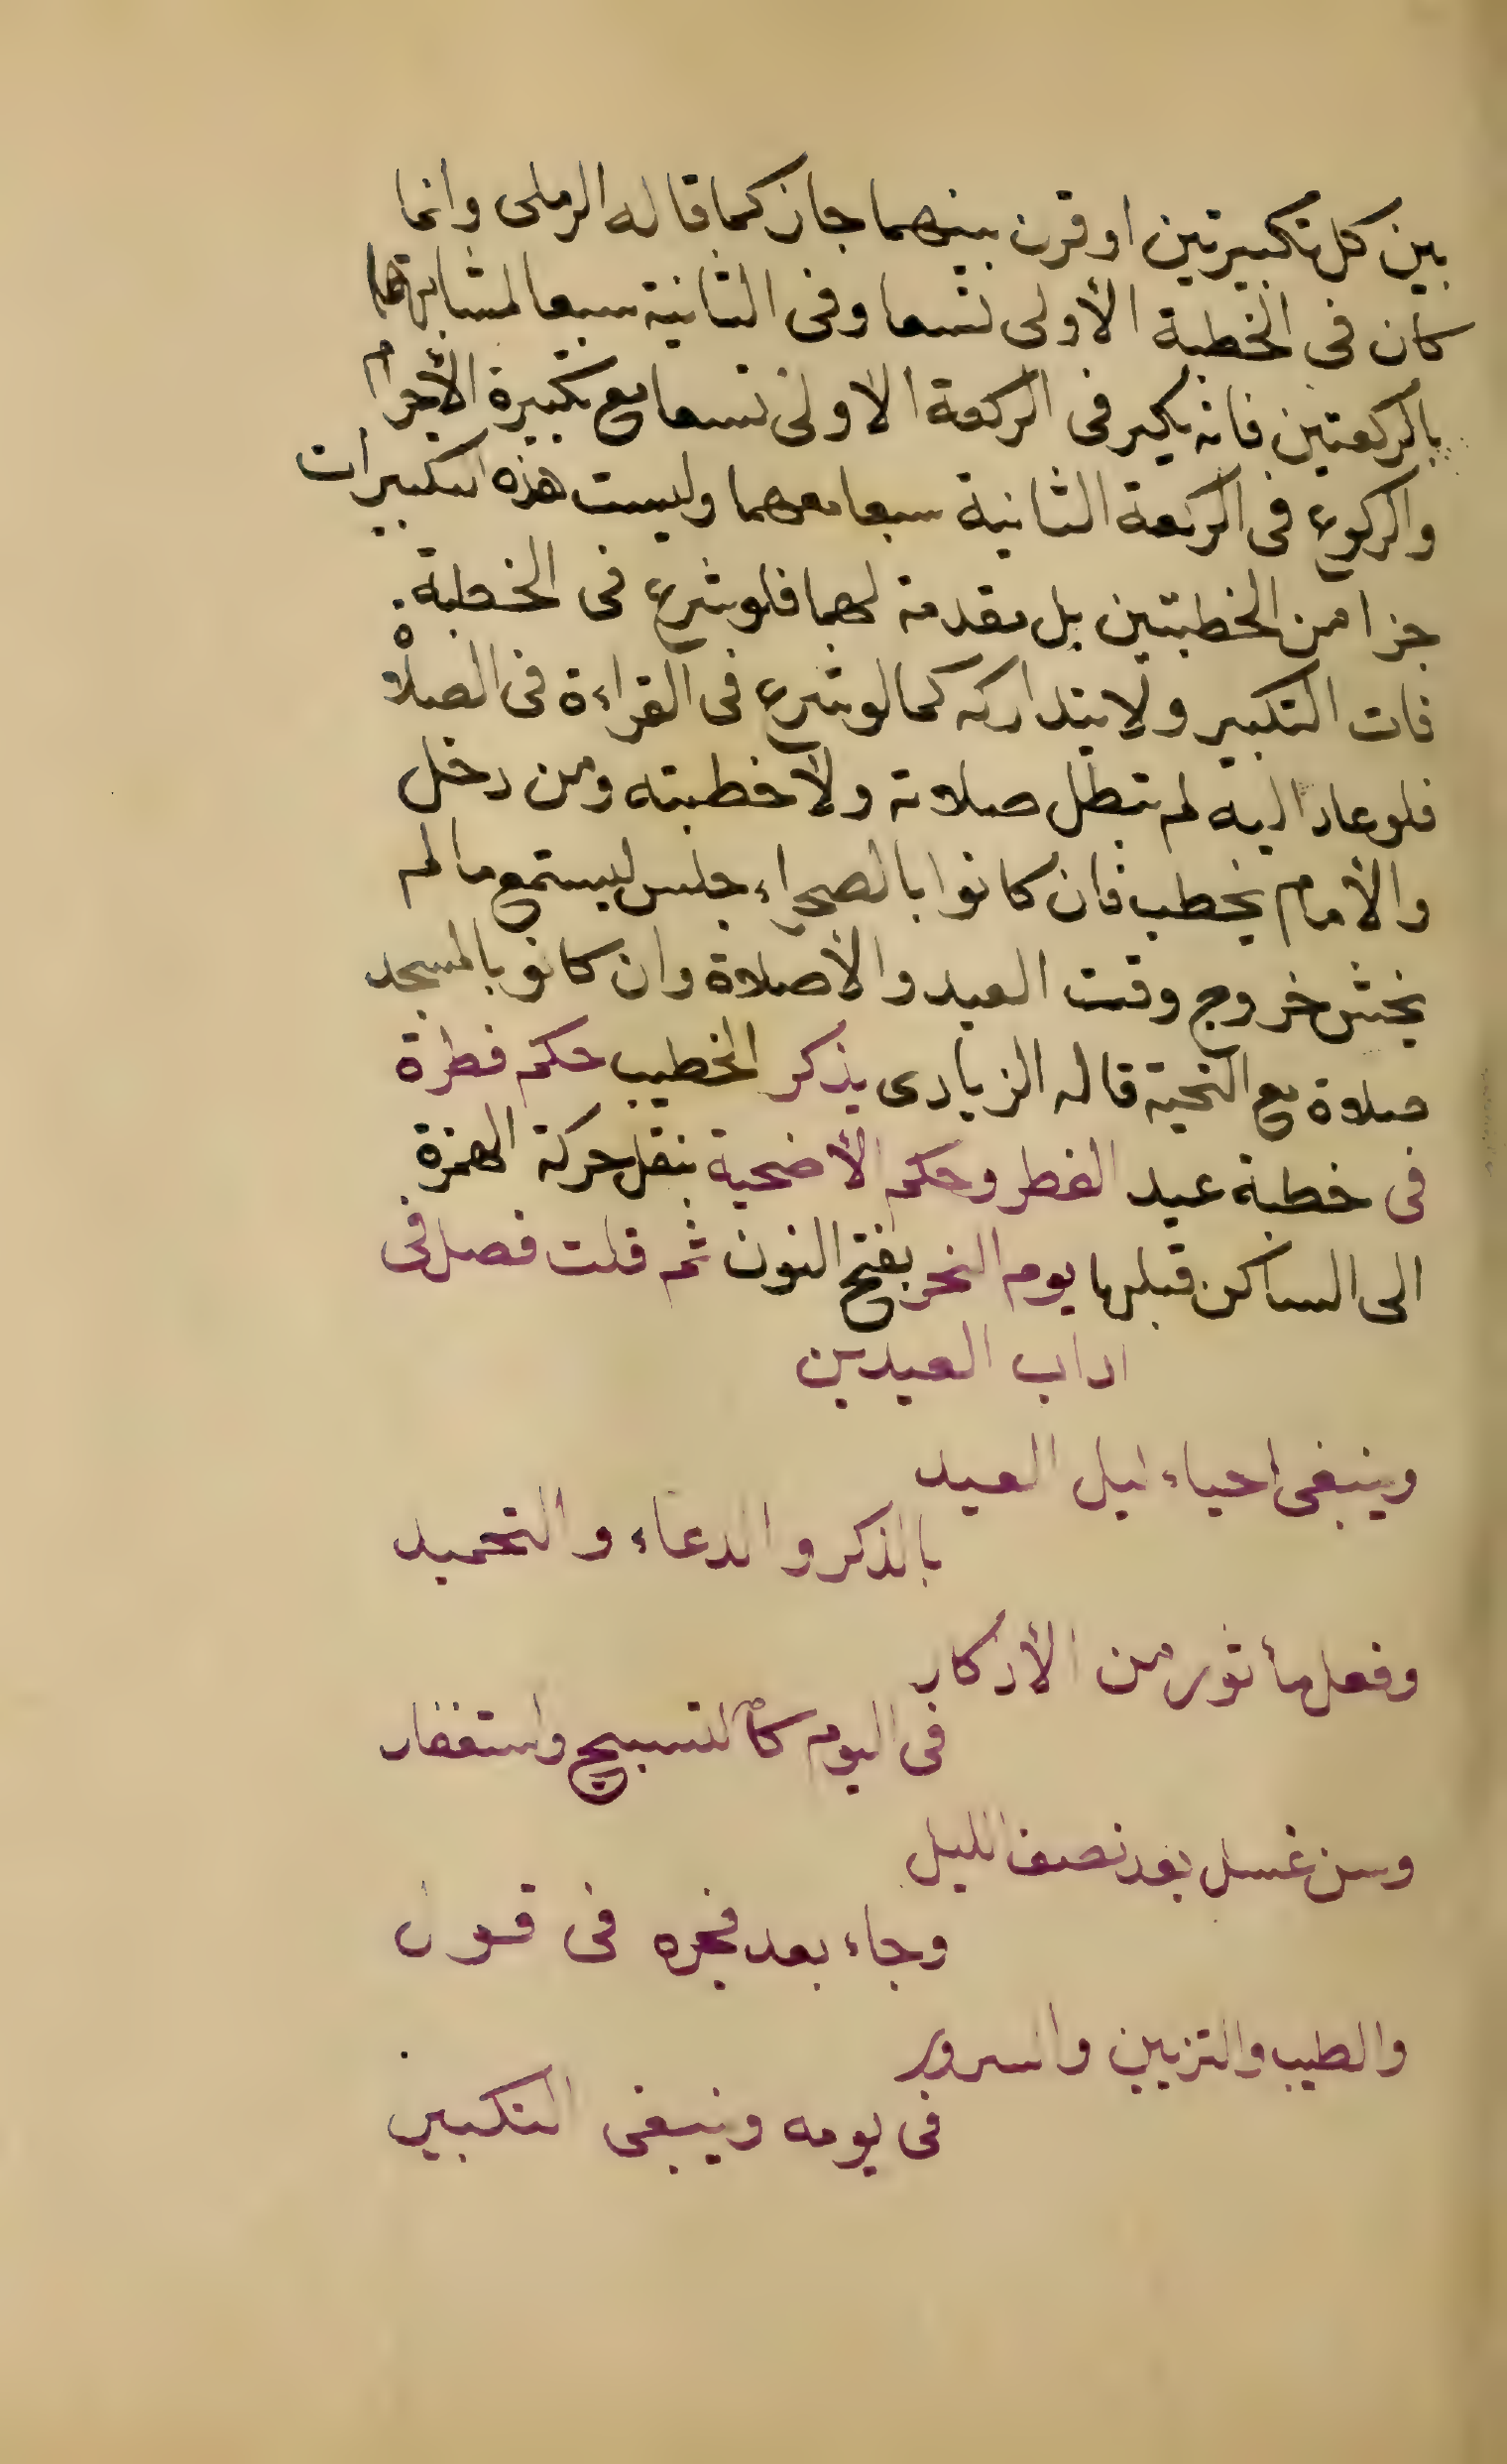 بين كل تكبيرتين او قرن بينهما جاز كما قاله الرملى وانما
كان فى الخطبة الأولى تسعا وفى الثانية سبعا لمشابهتهما
بالركعتين فانه يكبر فى الركعة الاولى تسعا مع تكبيرة الأحرام
والركوع فى الركعة الثانية سبعا معهما وليست هذه التكبيرات
جزا من الخطبتين بل مقدمة لهما فلو شرع فى الخطبة
فات التكبير ولا يتداركه كما لو شرع فى القراءة فى الصلاة
فلو عاد اليه لم تبطل صلاته ولا خطبته ومن دخل
والأمام يخطب فان كانوا بالصحراء جلس ليستمع ما لم
يخش خروج وقت العيد والأصلاة وان كانو بالمسجد
صلاة مع التحية قاله الزيادى يذكر الخطيب حكم فطرة
فى خطبة عيد الفطر وحكم الأضحية بنقل حركة الهمزة
الى الساكن قبلها يوم النحر بفتح النون ثم قلت فصل فى
اداب العيدين
وينبغى احياء ليل العيد
بالذكر والدعاء والتحميد
وفعل مأثور من الأذكار
فى اليوم كالتسبيح واستغفار
وسن غسل بعد نصف الليل
وجاء بعد فجره فى قول
والطيب والتزيين والسرور
فى يومه وينبغى التكبير